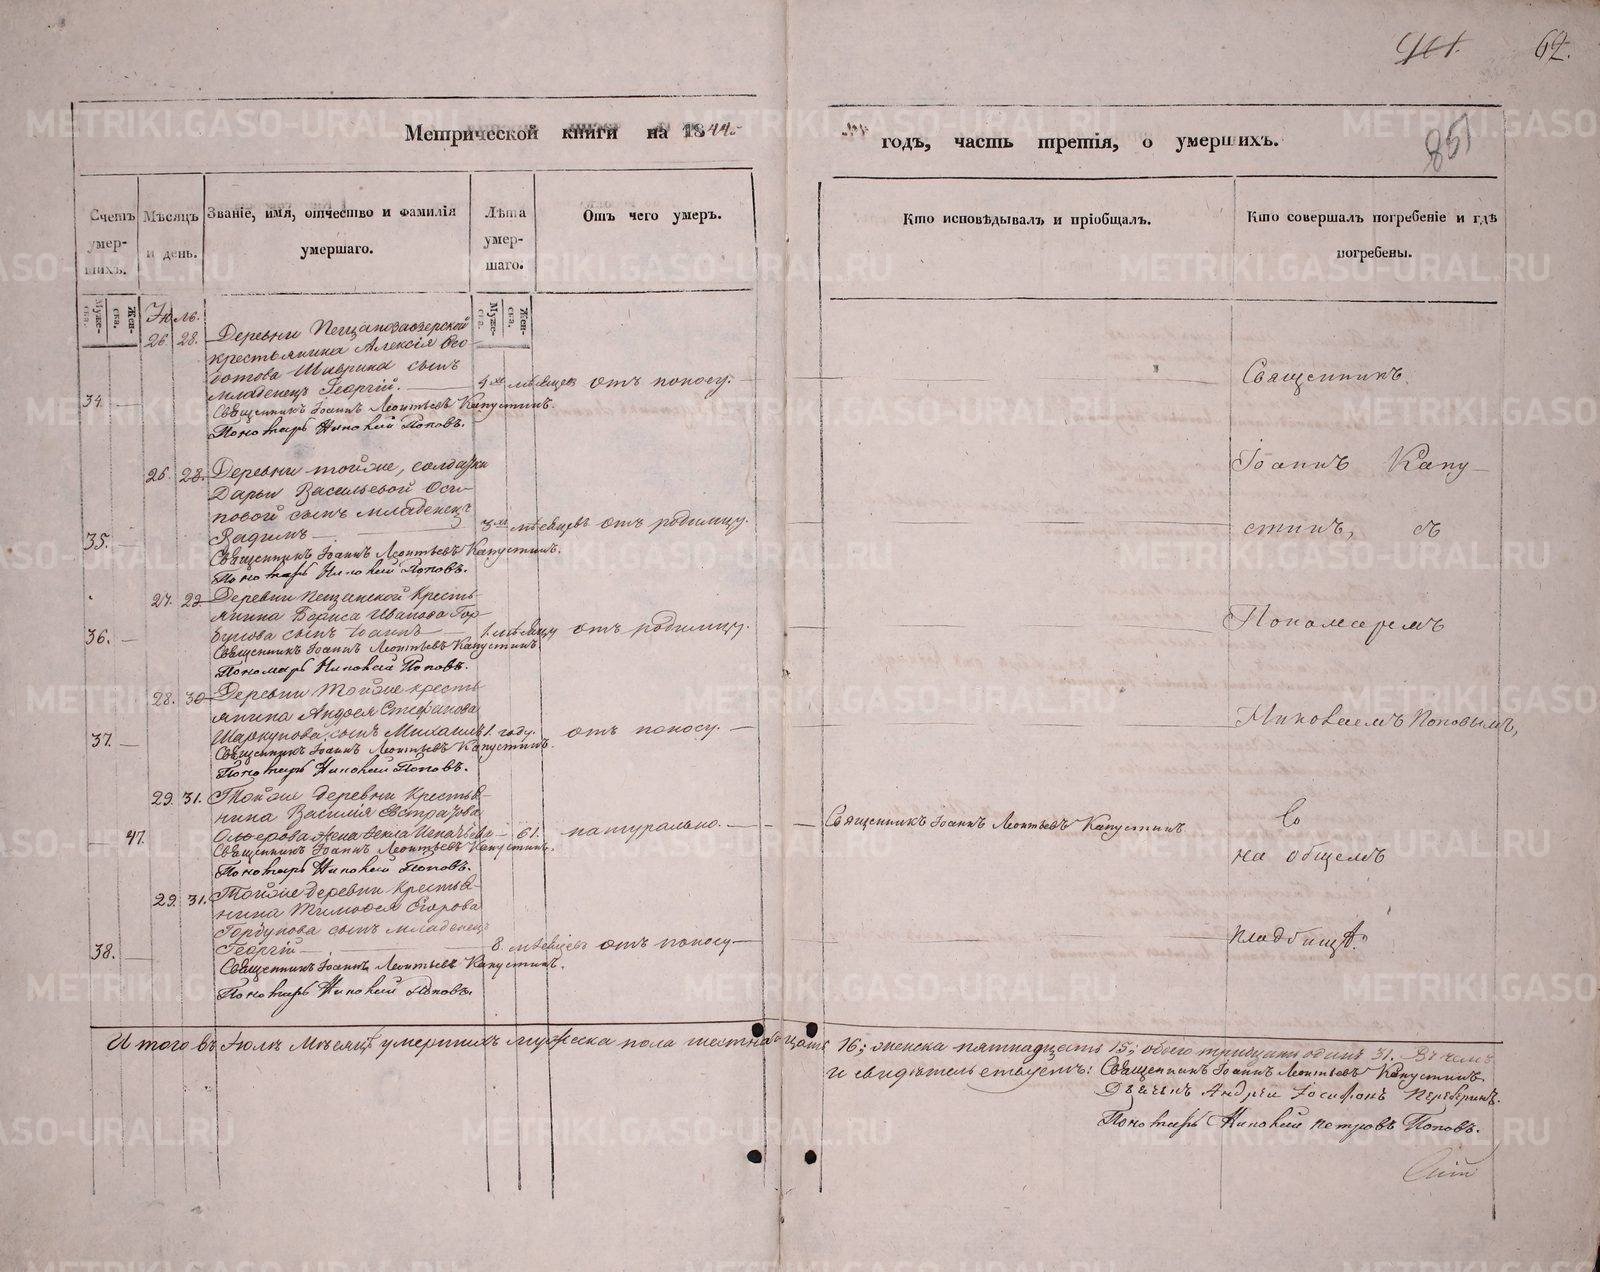 62.
851
Метрической книги на 1844.
годъ, часть третія, о умершихъ.
Счетъ умер-шихъ.
Муже-ска.
Жен-ска.
Мѣсяцъ и день.
Званіе, имя, отчество и фамилія умершаго.
Лѣта умер-шаго.
Муже-ска.
Жен-ска.
Отъ чего умеръ.
Кто исповѣдывалъ и пріобщалъ.
Кто совершалъ погребеніе и гдѣ погребены.
Іюль.
26. 28. Деревни Песчановзаозерской
крестьянина Алексія Ѳео-
дотова Шаврина сынъ
34. младенецъ Георгій. 4хъ мѣсяцев отъ поносу.
Священникъ Іоаннъ Леонтьевъ Капустинъ.
Пономарь Николай Поповъ.
26. 28. Деревни тойже, солдатки
Дарьи Васильевой Оси-
повой сынъ младенецъ
35. Вадимъ 3хъ мѣсяцевъ отъ родимцу.
Священникъ Іоаннъ Леонтьевъ Капустинъ.
Пономарь Николай Поповъ.
27. 29. Деревни Песчанской Кресть-
янина Бориса Иванова Гор-
36. бунова сынъ Іоаннъ 1. мѣсяцу отъ родимцу.
Священникъ Іоаннъ Леонтьевъ Капустинъ.
Пономарь Николай Поповъ.
28. 30. Деревни Тойже кресть-
янина Андрея Стефанова
37. Шаркунова, сынъ Михаилъ 1. году. отъ поносу.
Священникъ Іоаннъ Леонтьевъ Капустинъ.
Пономарь Николай Поповъ.
29. 31. Тойже деревни Крестья-
нина Василія Евстратова
47. жена Ѳекла Игнатьева 61. натурально. Священникъ Іоаннъ Леонтьевъ Капустинъ
Священникъ Іоаннъ Леонтьевъ Капустинъ.
Пономарь Николай Поповъ.
29. 31. Тойже деревни Крестья-
нина Тимоѳея Егорова
Горбунова сынъ младенецъ
38. Георгій 8. мѣсяцевъ отъ поносу
Священникъ Іоаннъ Леонтьевъ Капустинъ.
Пономарь Николай Поповъ.
Священникъ
Іоаннъ Капу-
стинъ, съ
Пономаремъ
Николаемъ Поповымъ,
на общемъ
кладбищѣ.
Итого въ Іюлѣ Мѣсяцѣ умершихъ мужеска пола шестнадцать 16; женска пятнадцать 15; обоего тридцать одинъ 31. Въ чемъ
и свидѣтельствуемъ: Священникъ Іоаннъ Леонтьевъ Капустинъ.
Дьячекъ Андрей Іосифовъ
Пономарь Николай Петровъ Поповъ.
METRIKI.GASO-URAL.RU